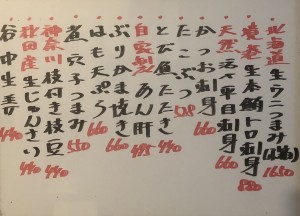 北海道 生うにつまみ(塩水) 1650
境港 生本鮪トロ刺身 880
天然 活〆平目刺身 660
かつお刺身
たこぶつ 528
とび魚たたき 440
自家製 あん肝 495
ぶりかま焼き 660
はも天ぷら 660
煮穴子つまみ 550
神奈川 枝付き枝豆 440
秋田産 生じゅんさい 440
谷中生姜 440